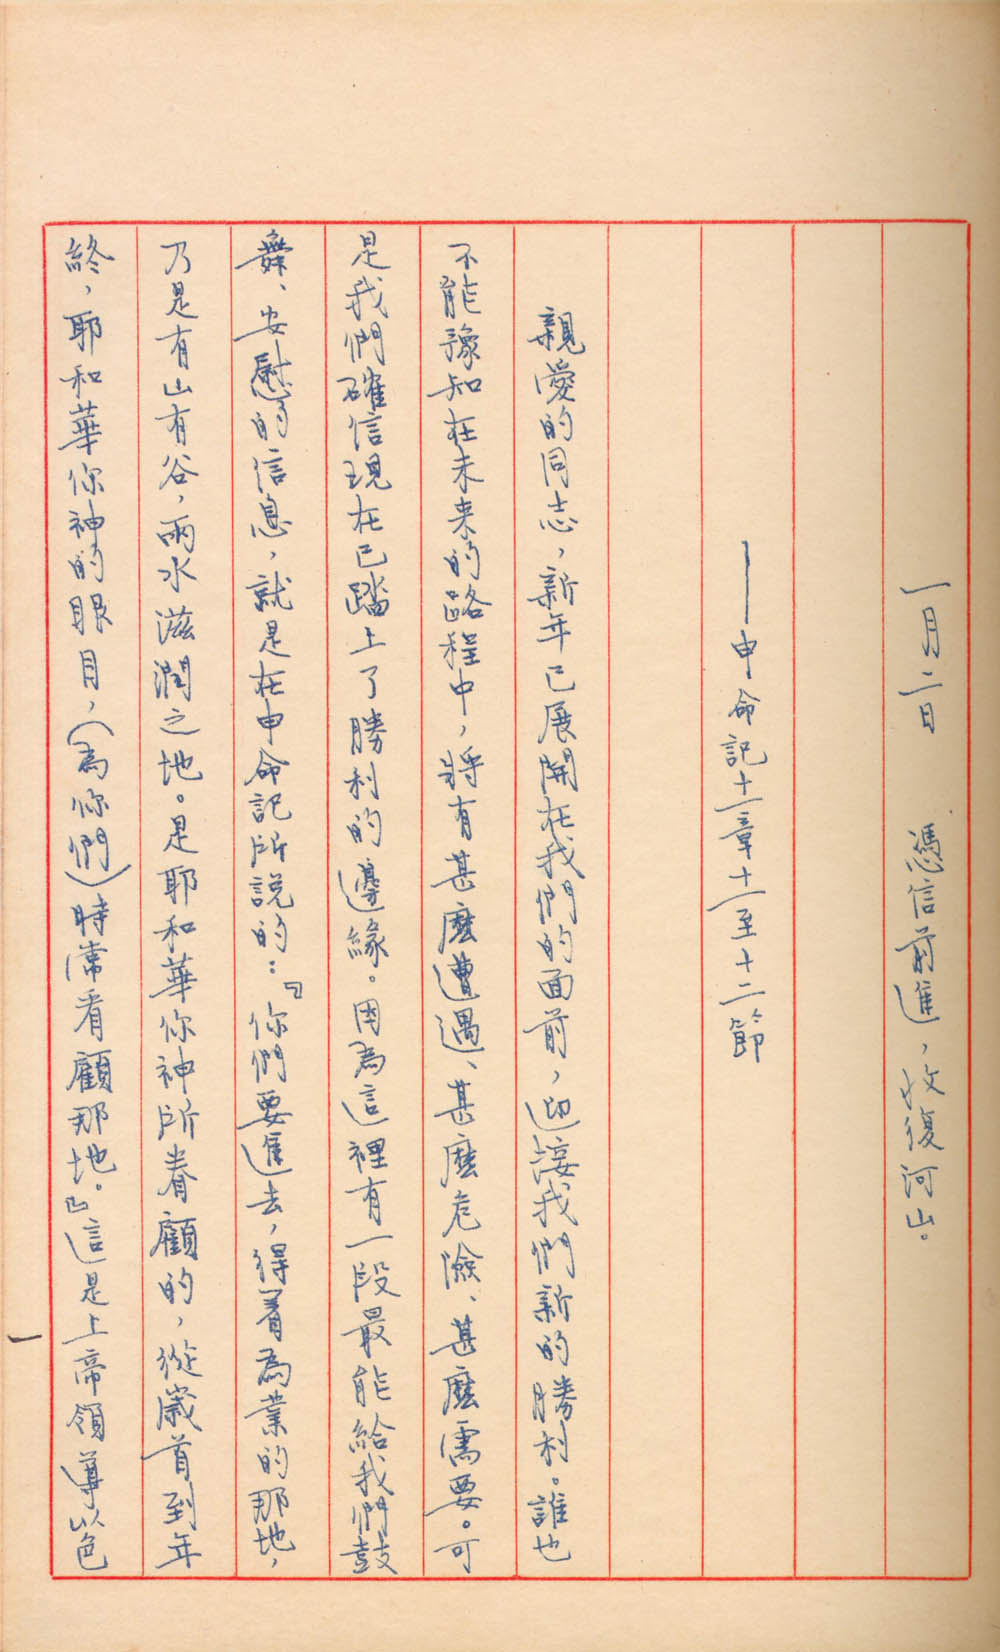 一月二日　憑信前進，收復河山。
——申命記十一章十一至十二節
親愛的同志，新年已展開在我們的面前，迎接我們新的勝利。誰也
不能豫知在未來的路程中，將有甚麼遭遇、甚麼危險、甚麼需要。可
是我們確信現在已踏上了勝利的邊緣。因為這裡有一段最能給我們鼓
舞、安慰的信息，就是在申命記所說的：『你們要進去，得着為業的那地，
乃是有山有谷，雨水滋潤之地。是耶和華你神所眷顧的，從歲首到年
終，耶和華你神的眼目，（為你們）時常看顧那地。』這是上帝領導以色
一